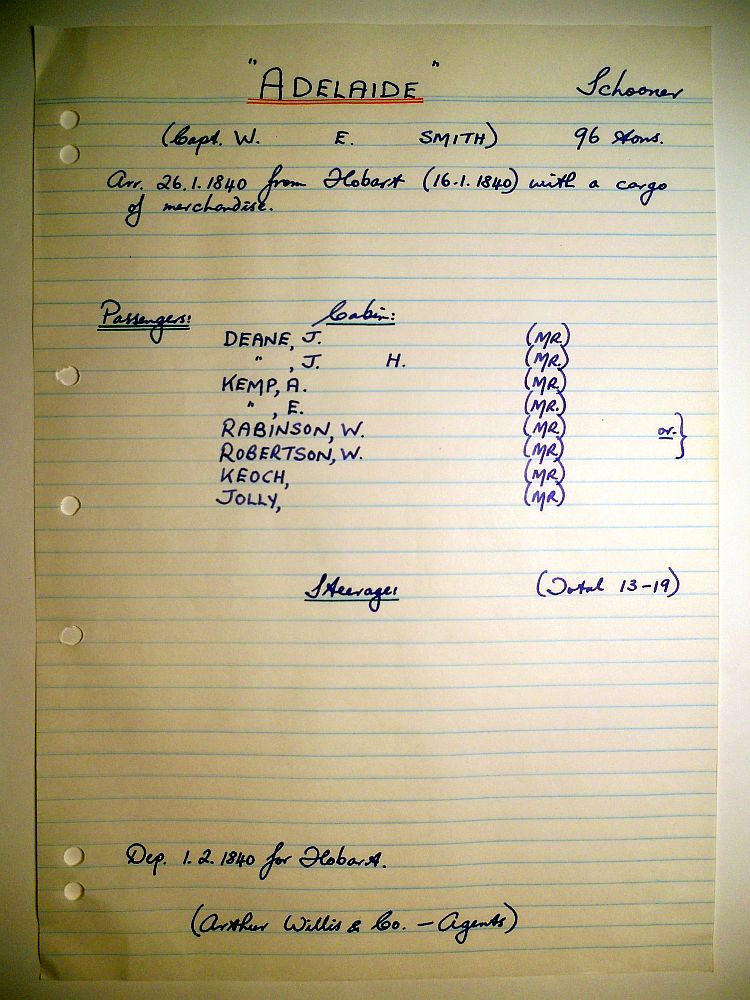 "ADELAIDE" Schooner
(Capt. W. E. SMITH) 96 tons.
Arr. 26.1.1840 from Hobart (16.1.1840) with a cargo
of merchandise.
Passengers: Cabin:
DEANE, J. (MR.)
" , J. H. (MR.)
KEMP, A. (MR.)
" , E. (MR.)
RABINSON, W. (MR.)
ROBERTSON, W. (MR.) or }
KEOCH, (MR)
JOLLY, (MR)
Steerage: (Total 13-19)
Dep. 1.2.1840 for Hobart.
(Arthur Willis & Co. - Agents)